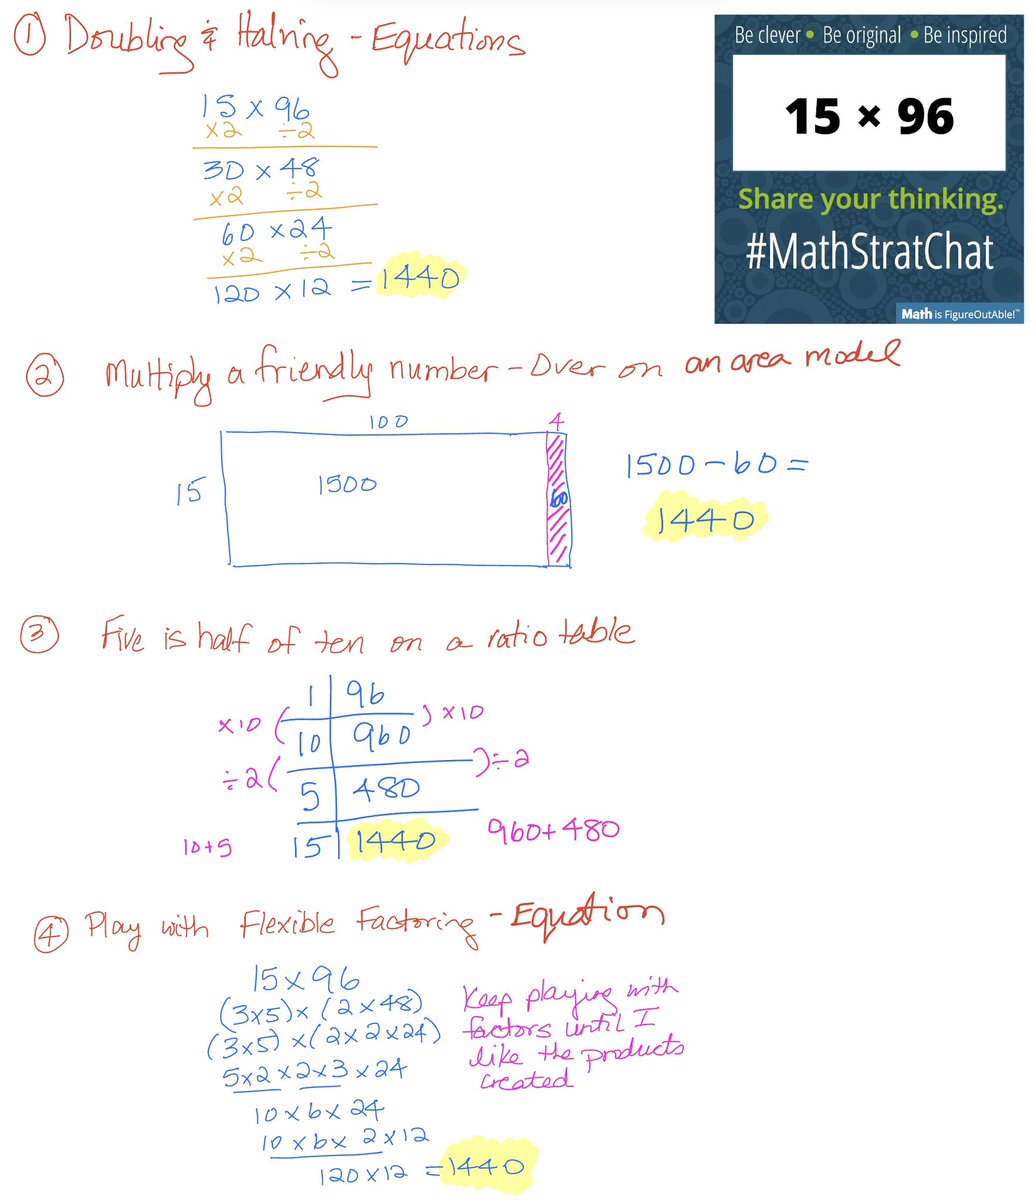 ① Doubling & Halving - Equations
15 × 96
×2 ÷2
30 × 48
×2 ÷2
60 × 24
×2 ÷2
120 × 12 = 1440
Be clever • Be original • Be inspired
15 × 96
Share your thinking.
#MathStratChat
Math is FigureOutAble!™
② Multiply a friendly number - Over on an area model
100 4
15 1500 60
1500 - 60 =
1440
③ Five is half of ten on a ratio table
1 96
×10 ( ) ×10
10 960
÷2 ( ) ÷2
5 480
10+5 15 1440 960+480
④ Play with Flexible Factoring - Equation
15 × 96
(3×5) × (2 × 48)
(3×5) × (2×2×24)
5×2 × 2×3 × 24
10 × 6 × 24
10 × 6 × 2 × 12
120 × 12 = 1440
Keep playing with
factors until I
like the products
created